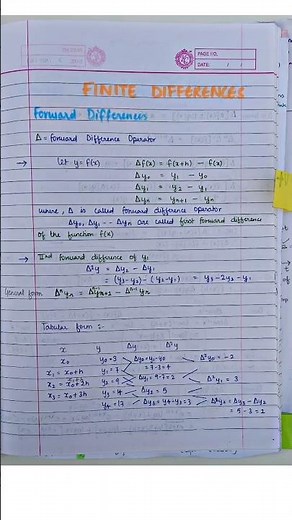 PAGE NO.
DATE: / /
FINITE DIFFERENCES
Forward Differences
Δ = Forward Difference Operator
→ Let y = f(x) Δf(x) = f(x+h) - f(x)
Δy₀ = y₁ - y₀
Δy₁ = y₂ - y₁
Δyₙ = yₙ₊₁ - yₙ
where, Δ is called forward difference operator
Δy₀, Δy₁ --- Δyₙ are called first forward difference
of the function f(x)
→ IInd forward difference of y₁
Δ²y = Δy₂ - Δy₁
= (y₃-y₂) - (y₂-y₁) = y₃ - 2y₂ - y₁
General form Δⁿyₙ = Δⁿ⁻¹yₙ₊₂ - Δⁿ⁻¹yₙ
Tabular form :-
x y Δy Δ²y
x₀ y₀=3 Δy₀=y₁-y₀ Δ²y₀ = -2
x₁ = x₀+h y₁=7 =7-3=4
x₂ = x₀+2h y₂=9 Δy₁=9-7=2 Δ²y₁ = 3
x₃ = x₀+3h y₃=14 Δy₂ = 5
y₄=17 Δy₃=y₄-y₃=3 Δ²y₂=Δy₃-Δy₂
= 5-3=2